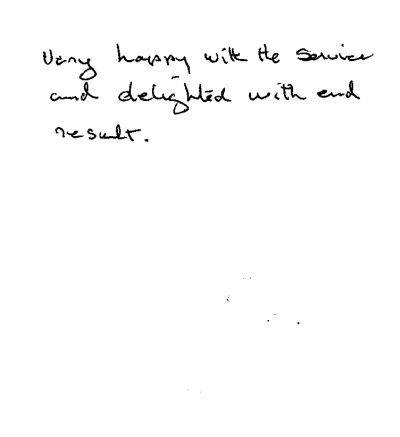 Very happy with the service
and delighted with end
result.